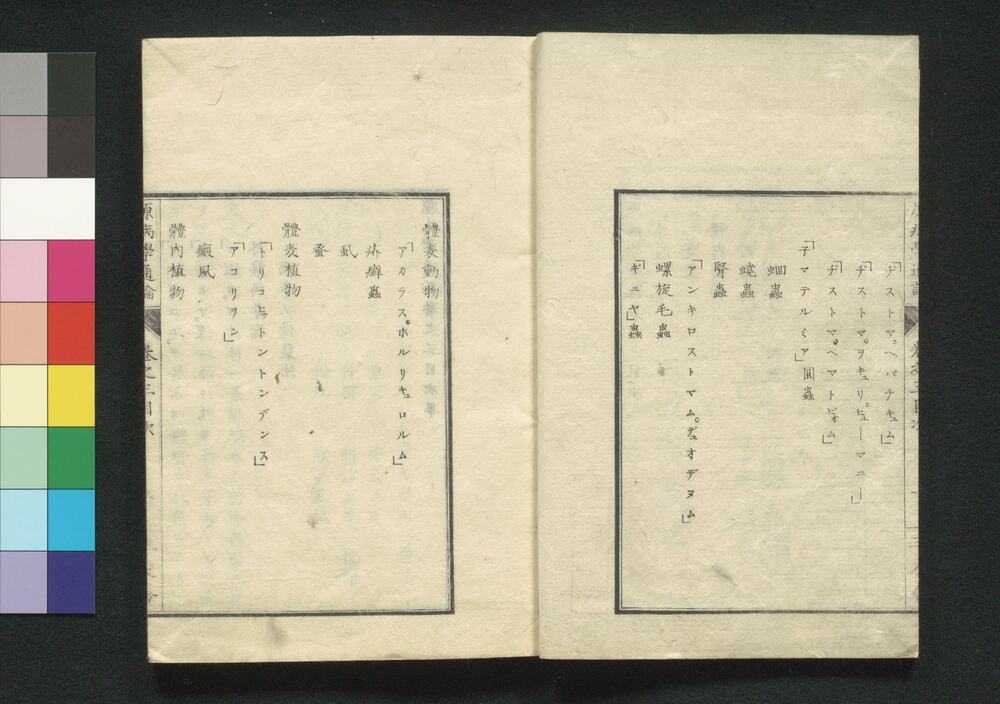 「ヂストマ。ヘパチキュム」
「ヂストマ。ヲキュリ。ヒューマニー」
「ヂストマ。ヘマトビオム」
「子マテルミア」圓蟲
蛔蟲
蟯蟲
腎蟲
「アンキロストマム。デュオデヌム」
螺旋毛蟲
「ギニヤ」蟲
體表動物
「アカラス。ホルリキュロルム」
疥癬蟲
虱
蚤
體表植物
「トリコヒットントンデンス」
「アコリヲン」
癜風
體内植物
原病學通論
卷之三目次